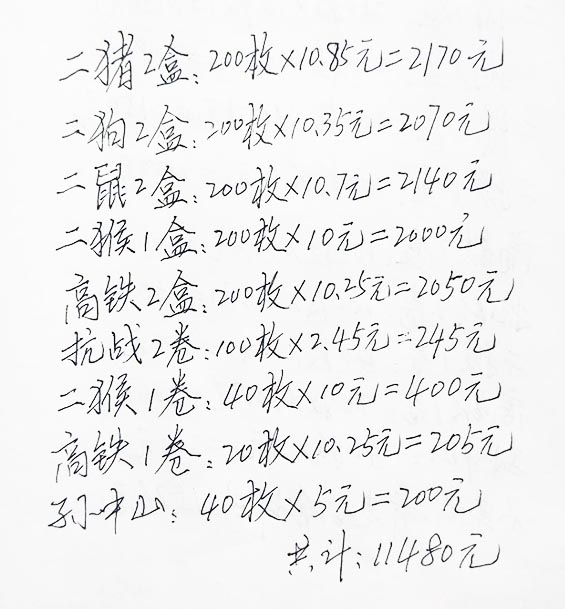 二猪2盒:200枚×10.85元=2170元
二狗2盒:200枚×10.35元=2070元
二鼠2盒:200枚×10.7元=2140元
二猴1盒:200枚×10元=2000元
高铁2盒:200枚×10.25元=2050元
抗战2卷:100枚×2.45元=245元
二猴1卷:40枚×10元=400元
高铁1卷:20枚×10.25元=205元
孙中山:40枚×5元=200元
共计:11480元